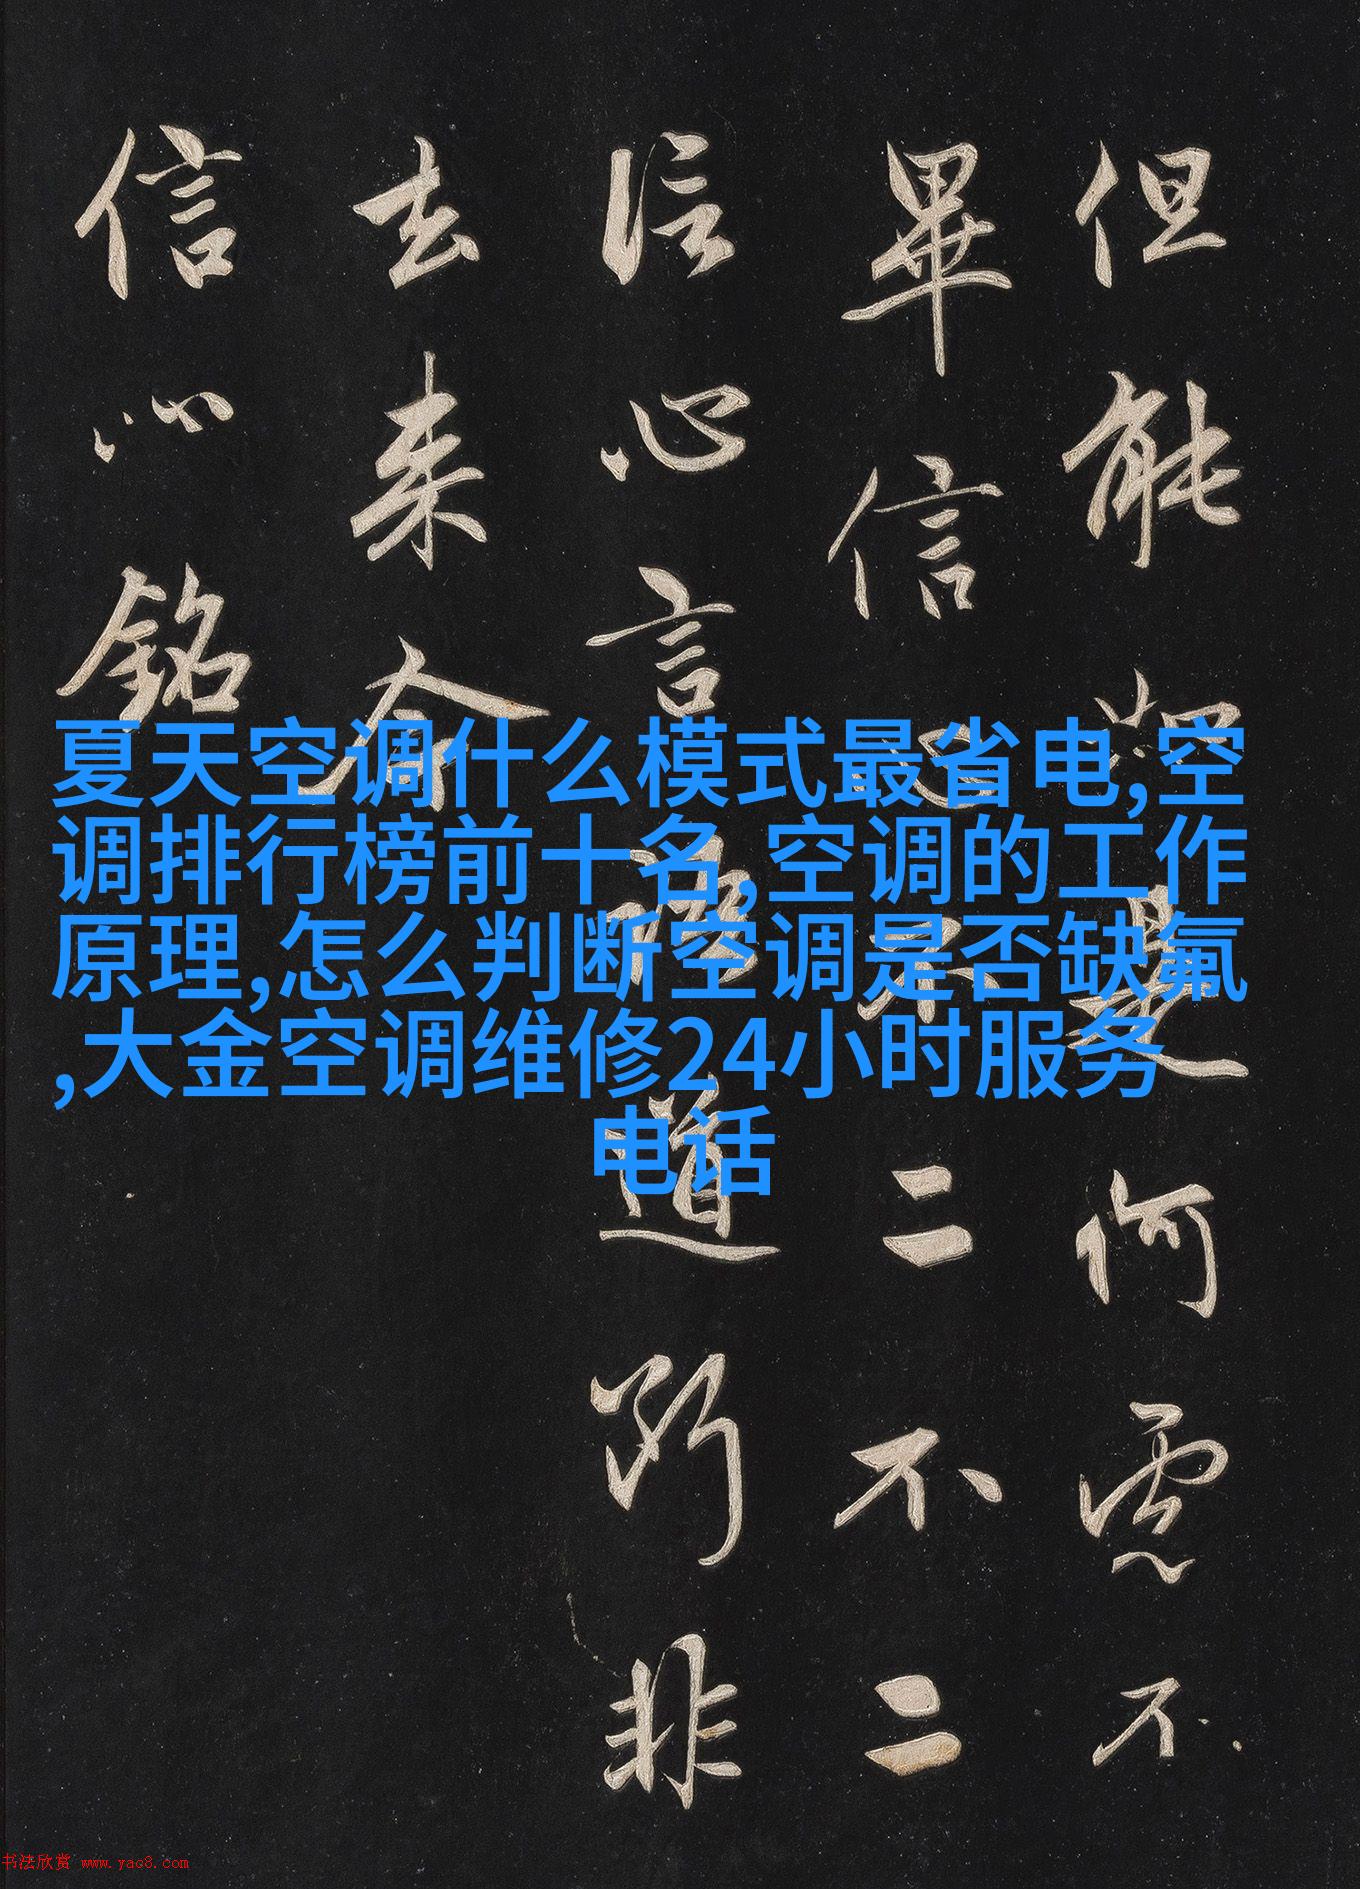 但能如是何慮不
畢信心不二不二
信心言語道斷非
去來今
信心銘
夏天空调什么模式最省电,空
调排行榜前十名,空调的工作
原理,怎么判断空调是否缺氟
,大金空调维修24小时服务
电话
书法欣赏 www.yac8.com